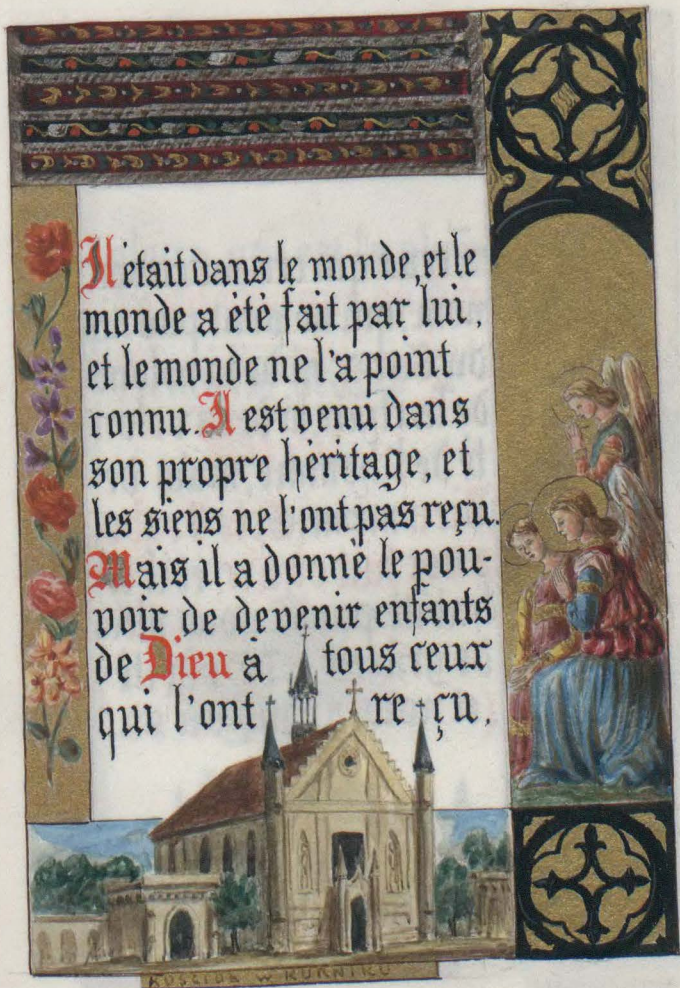 Il était dans le monde, et le
monde a été fait par lui,
et le monde ne l'a point
connu. Il est venu dans
son propre héritage, et
les siens ne l'ont pas reçu.
Mais il a donné le pou-
voir de devenir enfants
de Dieu à tous ceux
qui l'ont reçu.
KOŚCIOŁ W KURNIKU